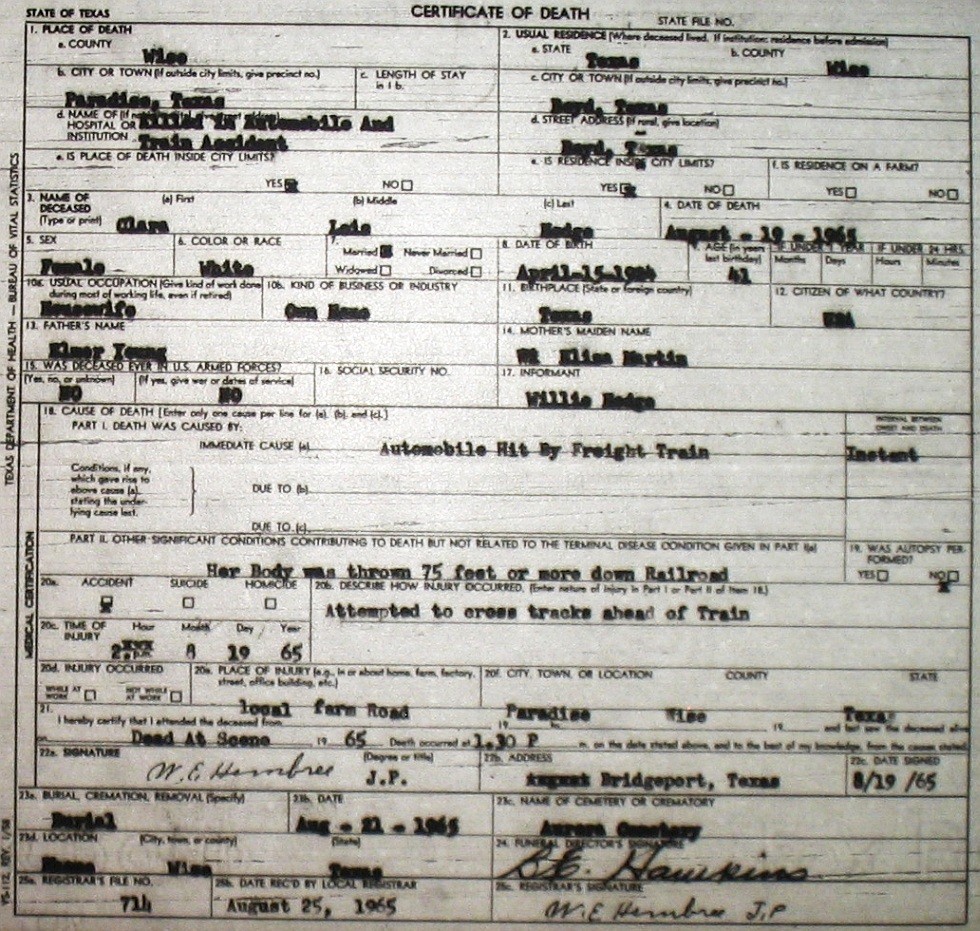 STATE OF TEXAS
CERTIFICATE OF DEATH
STATE FILE NO.
1. PLACE OF DEATH
a. COUNTY
Wise
2. USUAL RESIDENCE (Where deceased lived. If institution: residence before admission)
a. STATE
Texas
b. COUNTY
Wise
b. CITY OR TOWN (If outside city limits, give precinct no.)
Paradise, Texas
c. LENGTH OF STAY
in 1 b.
c. CITY OR TOWN (If outside city limits, give precinct no.)
Boyd, Texas
d. NAME OF (If
HOSPITAL OR
INSTITUTION
Killed in Automobile And
Train Accident
d. STREET ADDRESS (If rural, give location)
Boyd, Texas
e. IS PLACE OF DEATH INSIDE CITY LIMITS?
YES NO
e. IS RESIDENCE INSIDE CITY LIMITS?
YES NO
f. IS RESIDENCE ON A FARM?
YES NO
3. NAME OF
DECEASED
(Type or print)
(a) First
Clara
(b) Middle
Lois
(c) Last
Hodge
4. DATE OF DEATH
August - 19 - 1965
5. SEX
Female
6. COLOR OR RACE
White
7.
Married Never Married
Widowed Divorced
8. DATE OF BIRTH
April-15-1924
9. AGE (In years
last birthday)
41
IF UNDER 1 YEAR
Months Days
IF UNDER 24 HRS.
Hours Minutes
10a. USUAL OCCUPATION (Give kind of work done
during most of working life, even if retired)
Housewife
10b. KIND OF BUSINESS OR INDUSTRY
Own Home
11. BIRTHPLACE (State or foreign country)
Texas
12. CITIZEN OF WHAT COUNTRY?
USA
13. FATHER'S NAME
Elmer Young
14. MOTHER'S MAIDEN NAME
Eliza Martin
15. WAS DECEASED EVER IN U.S. ARMED FORCES?
(Yes, no, or unknown)
NO
(If yes, give war or dates of service)
NO
16. SOCIAL SECURITY NO.
17. INFORMANT
Willie Hodge
18. CAUSE OF DEATH [Enter only one cause per line for (a), (b), and (c).]
PART I. DEATH WAS CAUSED BY:
IMMEDIATE CAUSE (a)
Automobile Hit By Freight Train
INTERVAL BETWEEN
ONSET AND DEATH
Instant
Conditions, if any,
which gave rise to
above cause (a),
stating the under-
lying cause last.
DUE TO (b)
DUE TO (c)
PART II. OTHER SIGNIFICANT CONDITIONS CONTRIBUTING TO DEATH BUT NOT RELATED TO THE TERMINAL DISEASE CONDITION GIVEN IN PART I(a)
Her Body was thrown 75 feet or more down Railroad
19. WAS AUTOPSY PER-
FORMED?
YES NO
20a. ACCIDENT SUICIDE HOMICIDE
20b. DESCRIBE HOW INJURY OCCURRED. (Enter nature of injury in Part I or Part II of Item 18.)
Attempted to cross tracks ahead of Train
20c. TIME OF
INJURY
Hour Month Day Year
8 19 65
20d. INJURY OCCURRED
WHILE AT
WORK
NOT WHILE
AT WORK
20e. PLACE OF INJURY (e.g., in or about home, farm, factory,
street, office building, etc.)
local farm Road
20f. CITY, TOWN, OR LOCATION COUNTY STATE
Paradise Wise Texas
21.
I hereby certify that I attended the deceased from 19 to 19 and last saw the deceased alive
on Dead At Scene 19 65 Death occurred at 1.30 P m. on the date stated above, and to the best of my knowledge, from the causes stated.
22a. SIGNATURE
W. E Hembree
(Degree or title)
J.P.
22b. ADDRESS
August Bridgeport, Texas
22c. DATE SIGNED
8/19 /65
23a. BURIAL, CREMATION, REMOVAL (Specify)
Burial
23b. DATE
Aug - 21 - 1965
23c. NAME OF CEMETERY OR CREMATORY
Aurora Cemetery
23d. LOCATION (City, town, or county) (State)
Rhome Wise Texas
24. FUNERAL DIRECTOR'S SIGNATURE
B.E. Hawkins
25a. REGISTRAR'S FILE NO.
714
25b. DATE REC'D BY LOCAL REGISTRAR
August 25, 1965
25c. REGISTRAR'S SIGNATURE
W. E Hembree J.P
TEXAS DEPARTMENT OF HEALTH — BUREAU OF VITAL STATISTICS
MEDICAL CERTIFICATION
VS-112, REV. 1/58